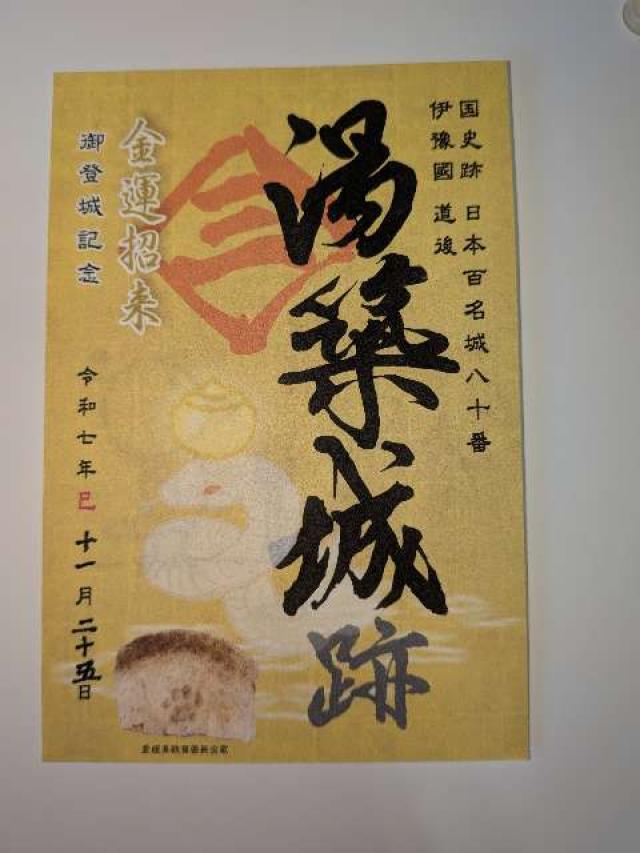 国史跡 日本百名城八十番
伊豫國 道後
湯築城跡
金運招来
御登城記念
令和七年巳十一月二十五日